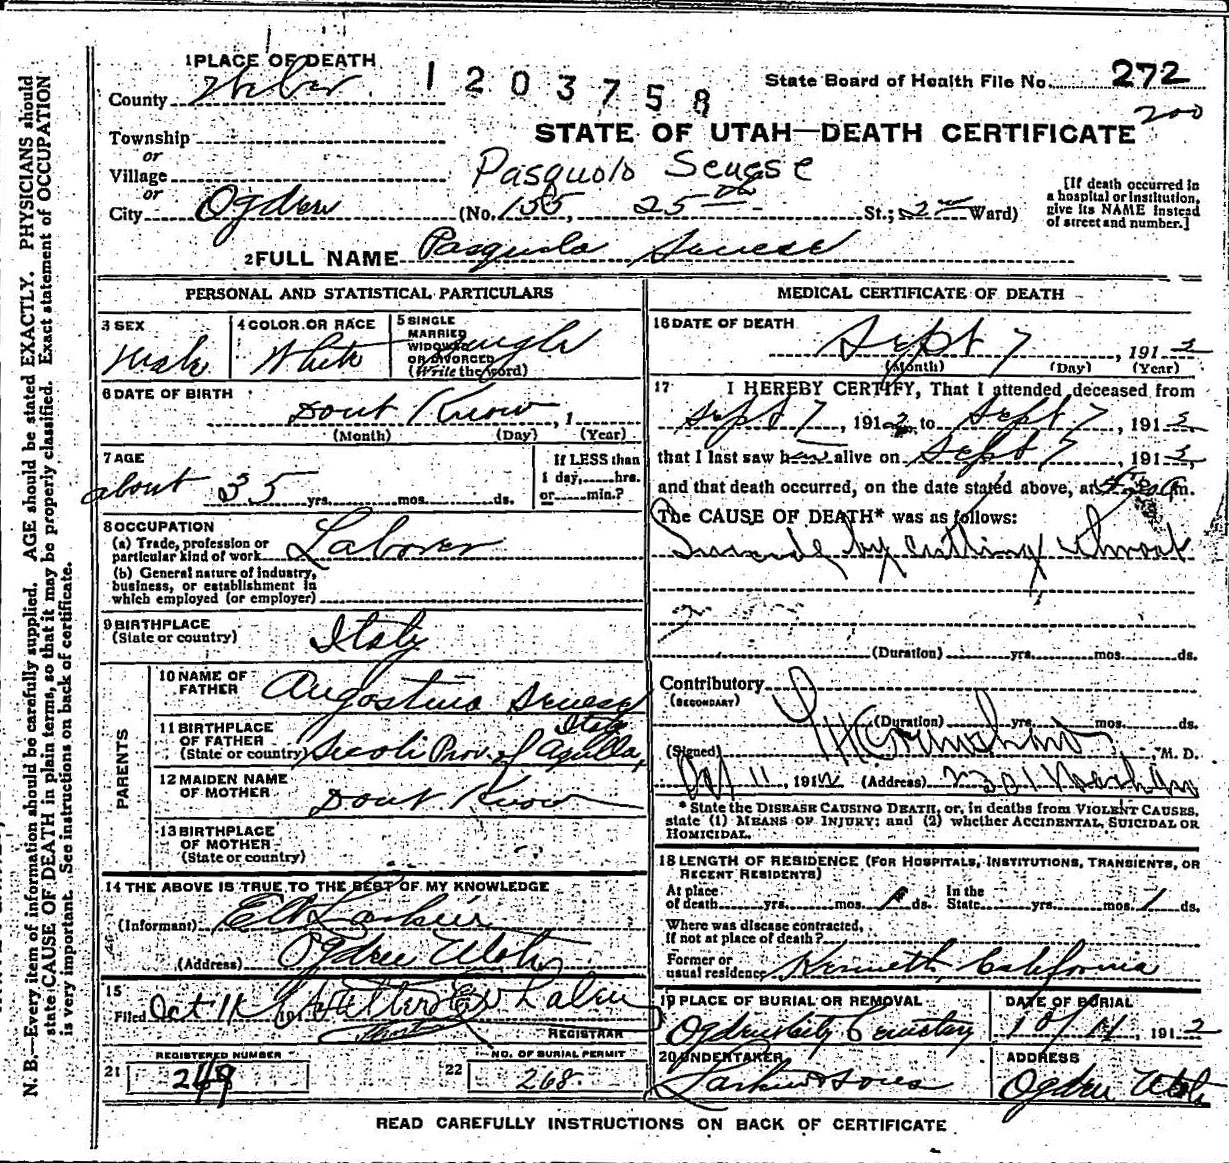 1 PLACE OF DEATH
County Weber
1203758
State Board of Health File No. 272
200
Township
or
Village
or
City Ogden
STATE OF UTAH—DEATH CERTIFICATE
Pasquolo Senese
(No. 155, 25th St.; 2nd Ward)
[If death occurred in
a hospital or institution,
give its NAME instead
of street and number.]
2 FULL NAME Pasquolo Senese
PERSONAL AND STATISTICAL PARTICULARS
3 SEX
Male
4 COLOR OR RACE
White
5 SINGLE
MARRIED
WIDOWED
OR DIVORCED
(Write the word)
Single
6 DATE OF BIRTH
Dont Know, 1
(Month) (Day) (Year)
7 AGE
about 35 yrs. mos. ds.
If LESS than
1 day, hrs.
or min.?
8 OCCUPATION
(a) Trade, profession or
particular kind of work Laborer
(b) General nature of industry,
business, or establishment in
which employed (or employer)
9 BIRTHPLACE
(State or country) Italy
PARENTS
10 NAME OF
FATHER Augostino Senese
11 BIRTHPLACE
OF FATHER
(State or country) Secoli Prov. of Aquilla, Italy
12 MAIDEN NAME
OF MOTHER Dont Know
13 BIRTHPLACE
OF MOTHER
(State or country)
14 THE ABOVE IS TRUE TO THE BEST OF MY KNOWLEDGE
(Informant) Larkin
(Address) Ogden Utah
15
Filed Oct 191
REGISTRAR
21 REGISTERED NUMBER
249
22 NO. OF BURIAL PERMIT
268
MEDICAL CERTIFICATE OF DEATH
16 DATE OF DEATH
Sept 7, 1912
(Month) (Day) (Year)
17 I HEREBY CERTIFY, That I attended deceased from
Sept 7, 1912, to Sept 7, 1912
that I last saw him alive on Sept 7, 1912,
and that death occurred, on the date stated above, at m.
The CAUSE OF DEATH* was as follows:
Suicide by cutting throat
(Duration) yrs. mos. ds.
Contributory
(SECONDARY)
(Duration) yrs. mos. ds.
(Signed) M. D.
Oct 11 1912 (Address) 2301
* State the DISEASE CAUSING DEATH, or, in deaths from VIOLENT CAUSES,
state (1) MEANS OF INJURY; and (2) whether ACCIDENTAL, SUICIDAL OR
HOMICIDAL.
18 LENGTH OF RESIDENCE (FOR HOSPITALS, INSTITUTIONS, TRANSIENTS, OR
RECENT RESIDENTS)
At place
of death yrs. mos. 1 ds.
In the
State yrs. mos. 1 ds.
Where was disease contracted,
if not at place of death?
Former or
usual residence Kenneth, California
19 PLACE OF BURIAL OR REMOVAL
Ogden City Cemetery
DATE OF BURIAL
10/11 1912
20 UNDERTAKER
Larkin & Sons
ADDRESS
Ogden Utah
READ CAREFULLY INSTRUCTIONS ON BACK OF CERTIFICATE
N. B.—Every item of information should be carefully supplied. AGE should be stated EXACTLY. PHYSICIANS should
state CAUSE OF DEATH in plain terms, so that it may be properly classified. Exact statement of OCCUPATION
is very important. See instructions on back of certificate.